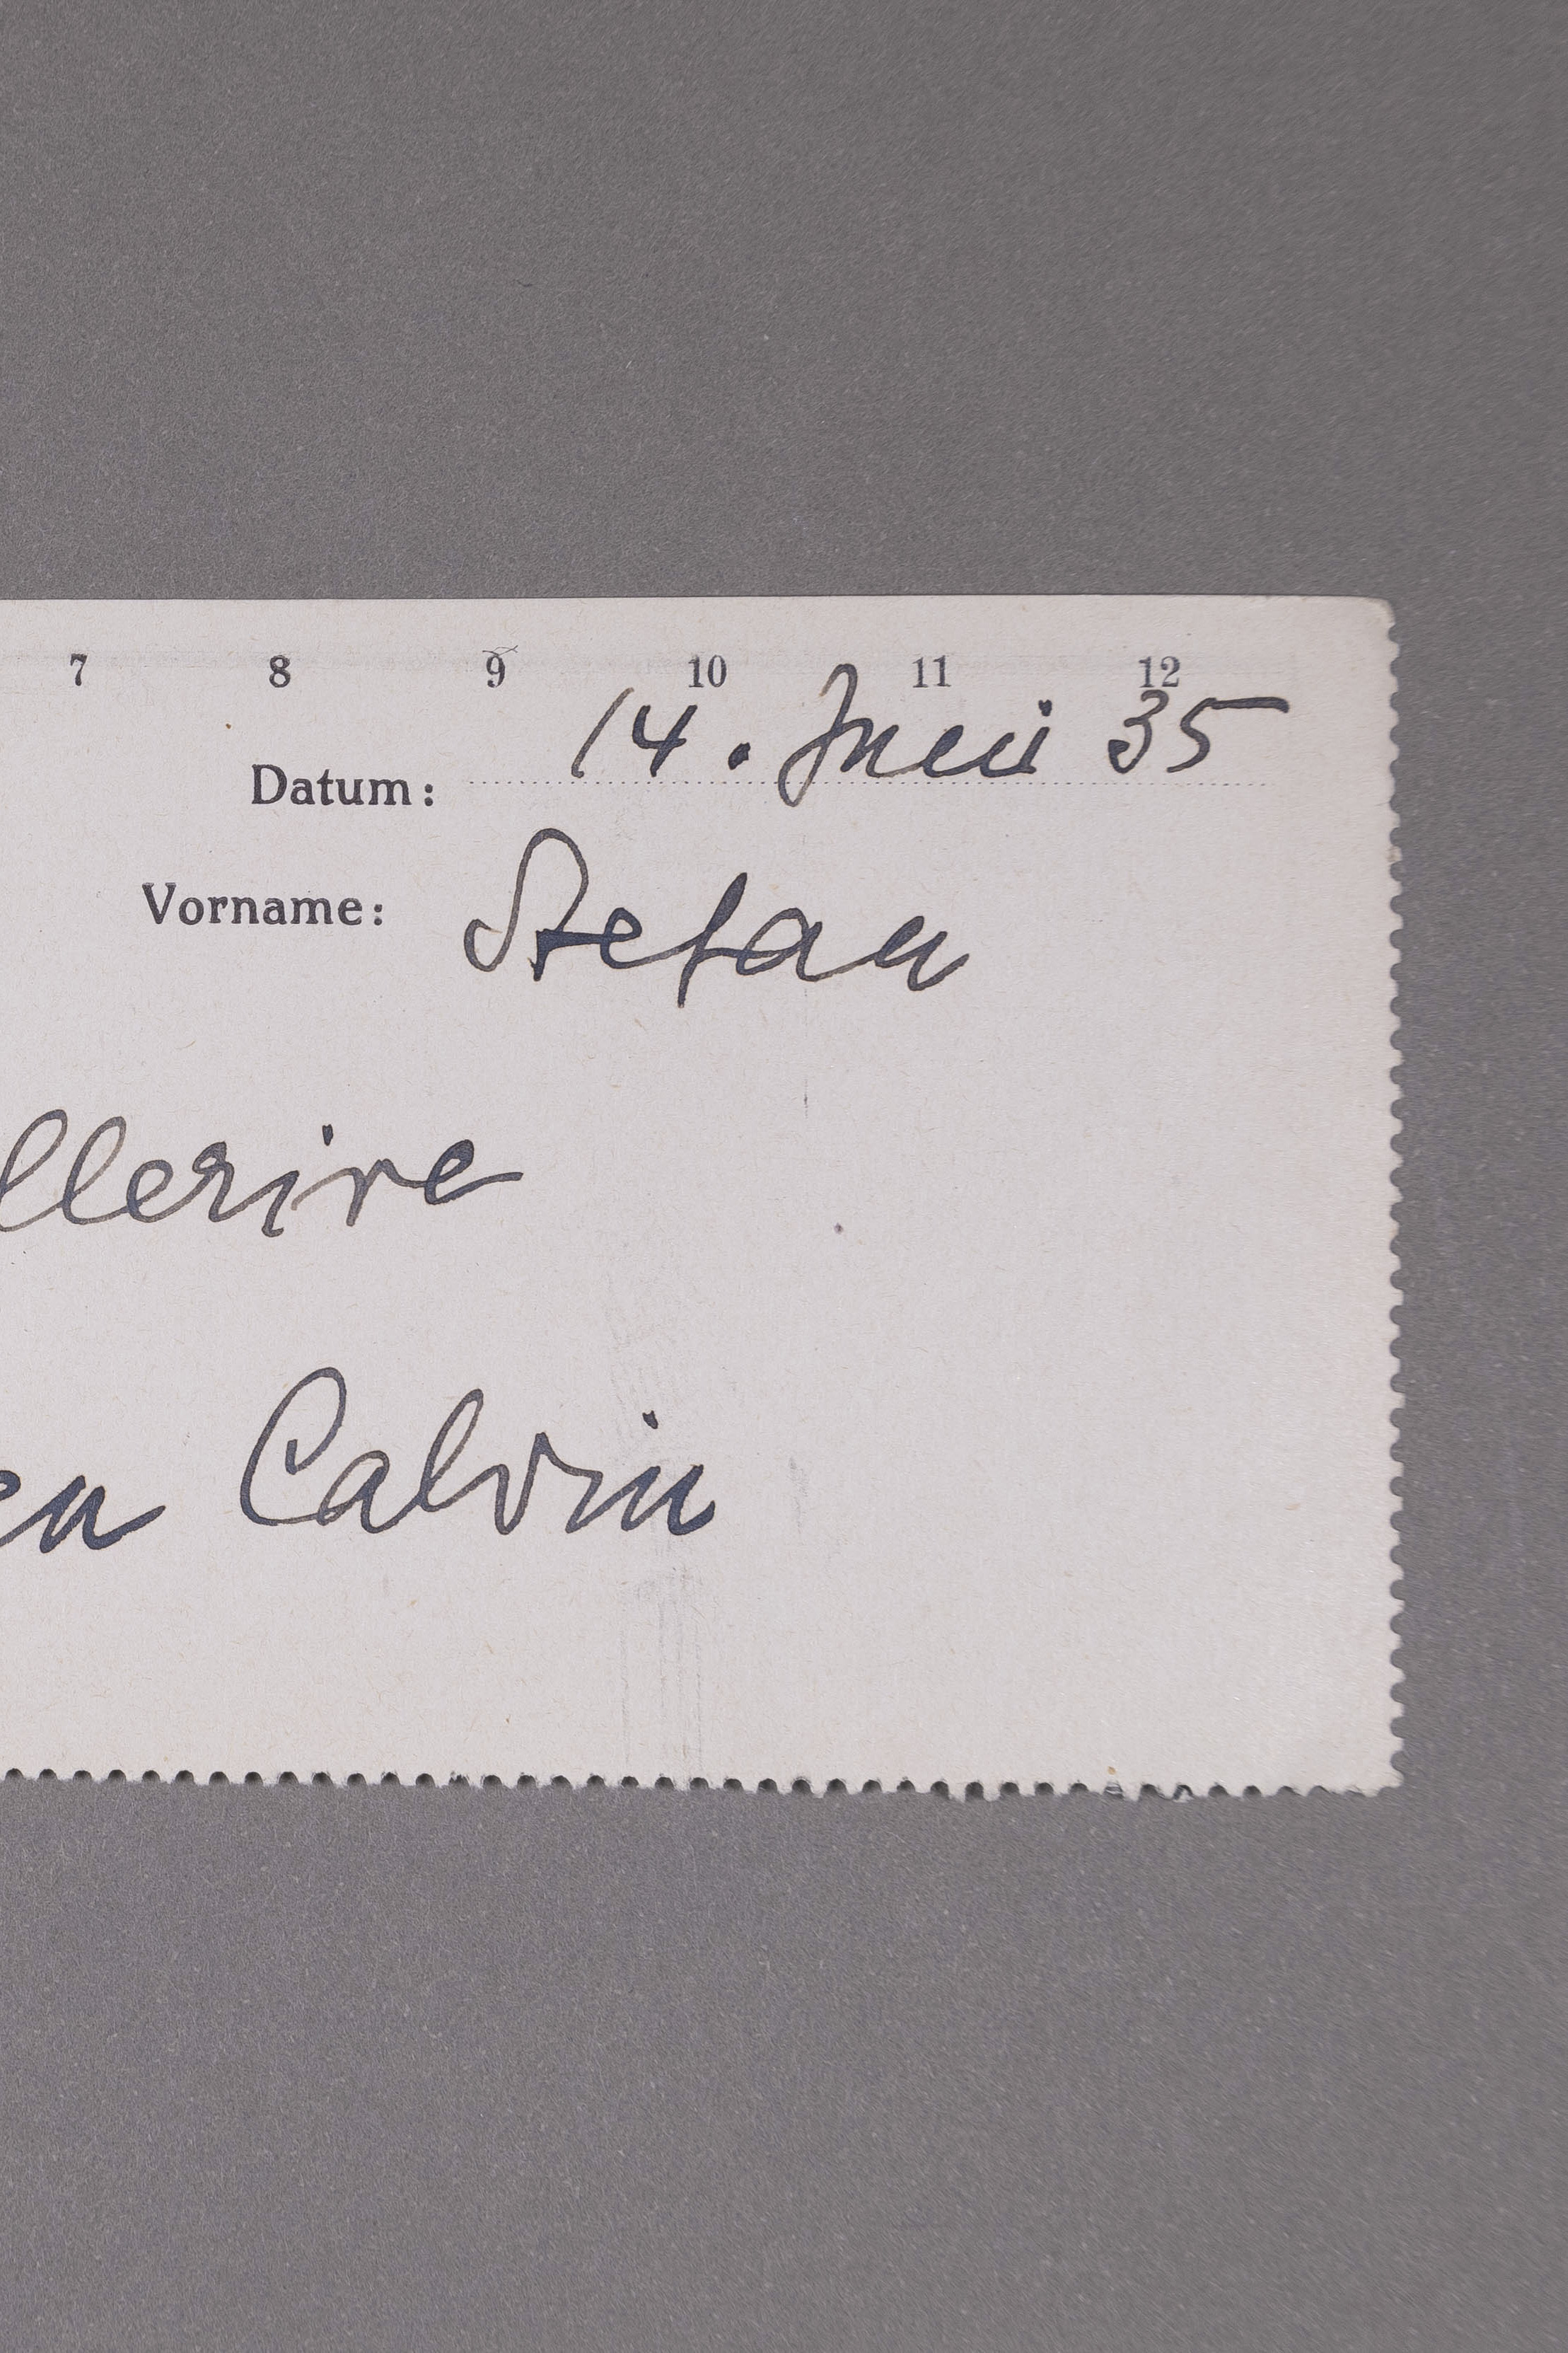 7 8 9 10 11 12
Datum: 14. Juni 35
Vorname: Stefan
llerive
en Calvin